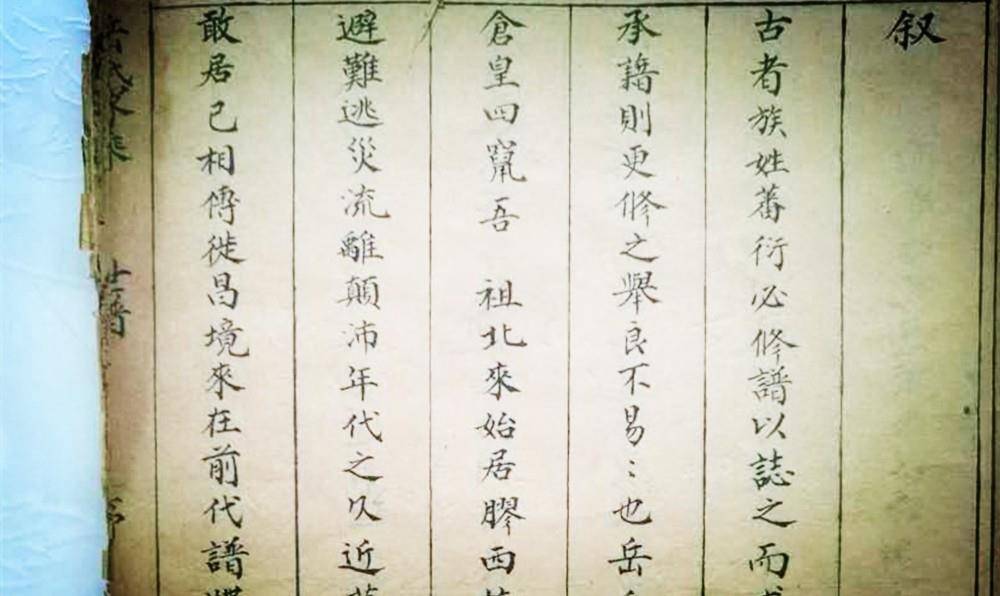 叙
古者族姓蕃衍必修譜以誌之而
承藉則更修之舉良不易〻也岳
倉皇四竄吾 祖北來始居膠西
避難逃災流離顛沛年代之久近
敢居己相傳徙昌境來在前代譜